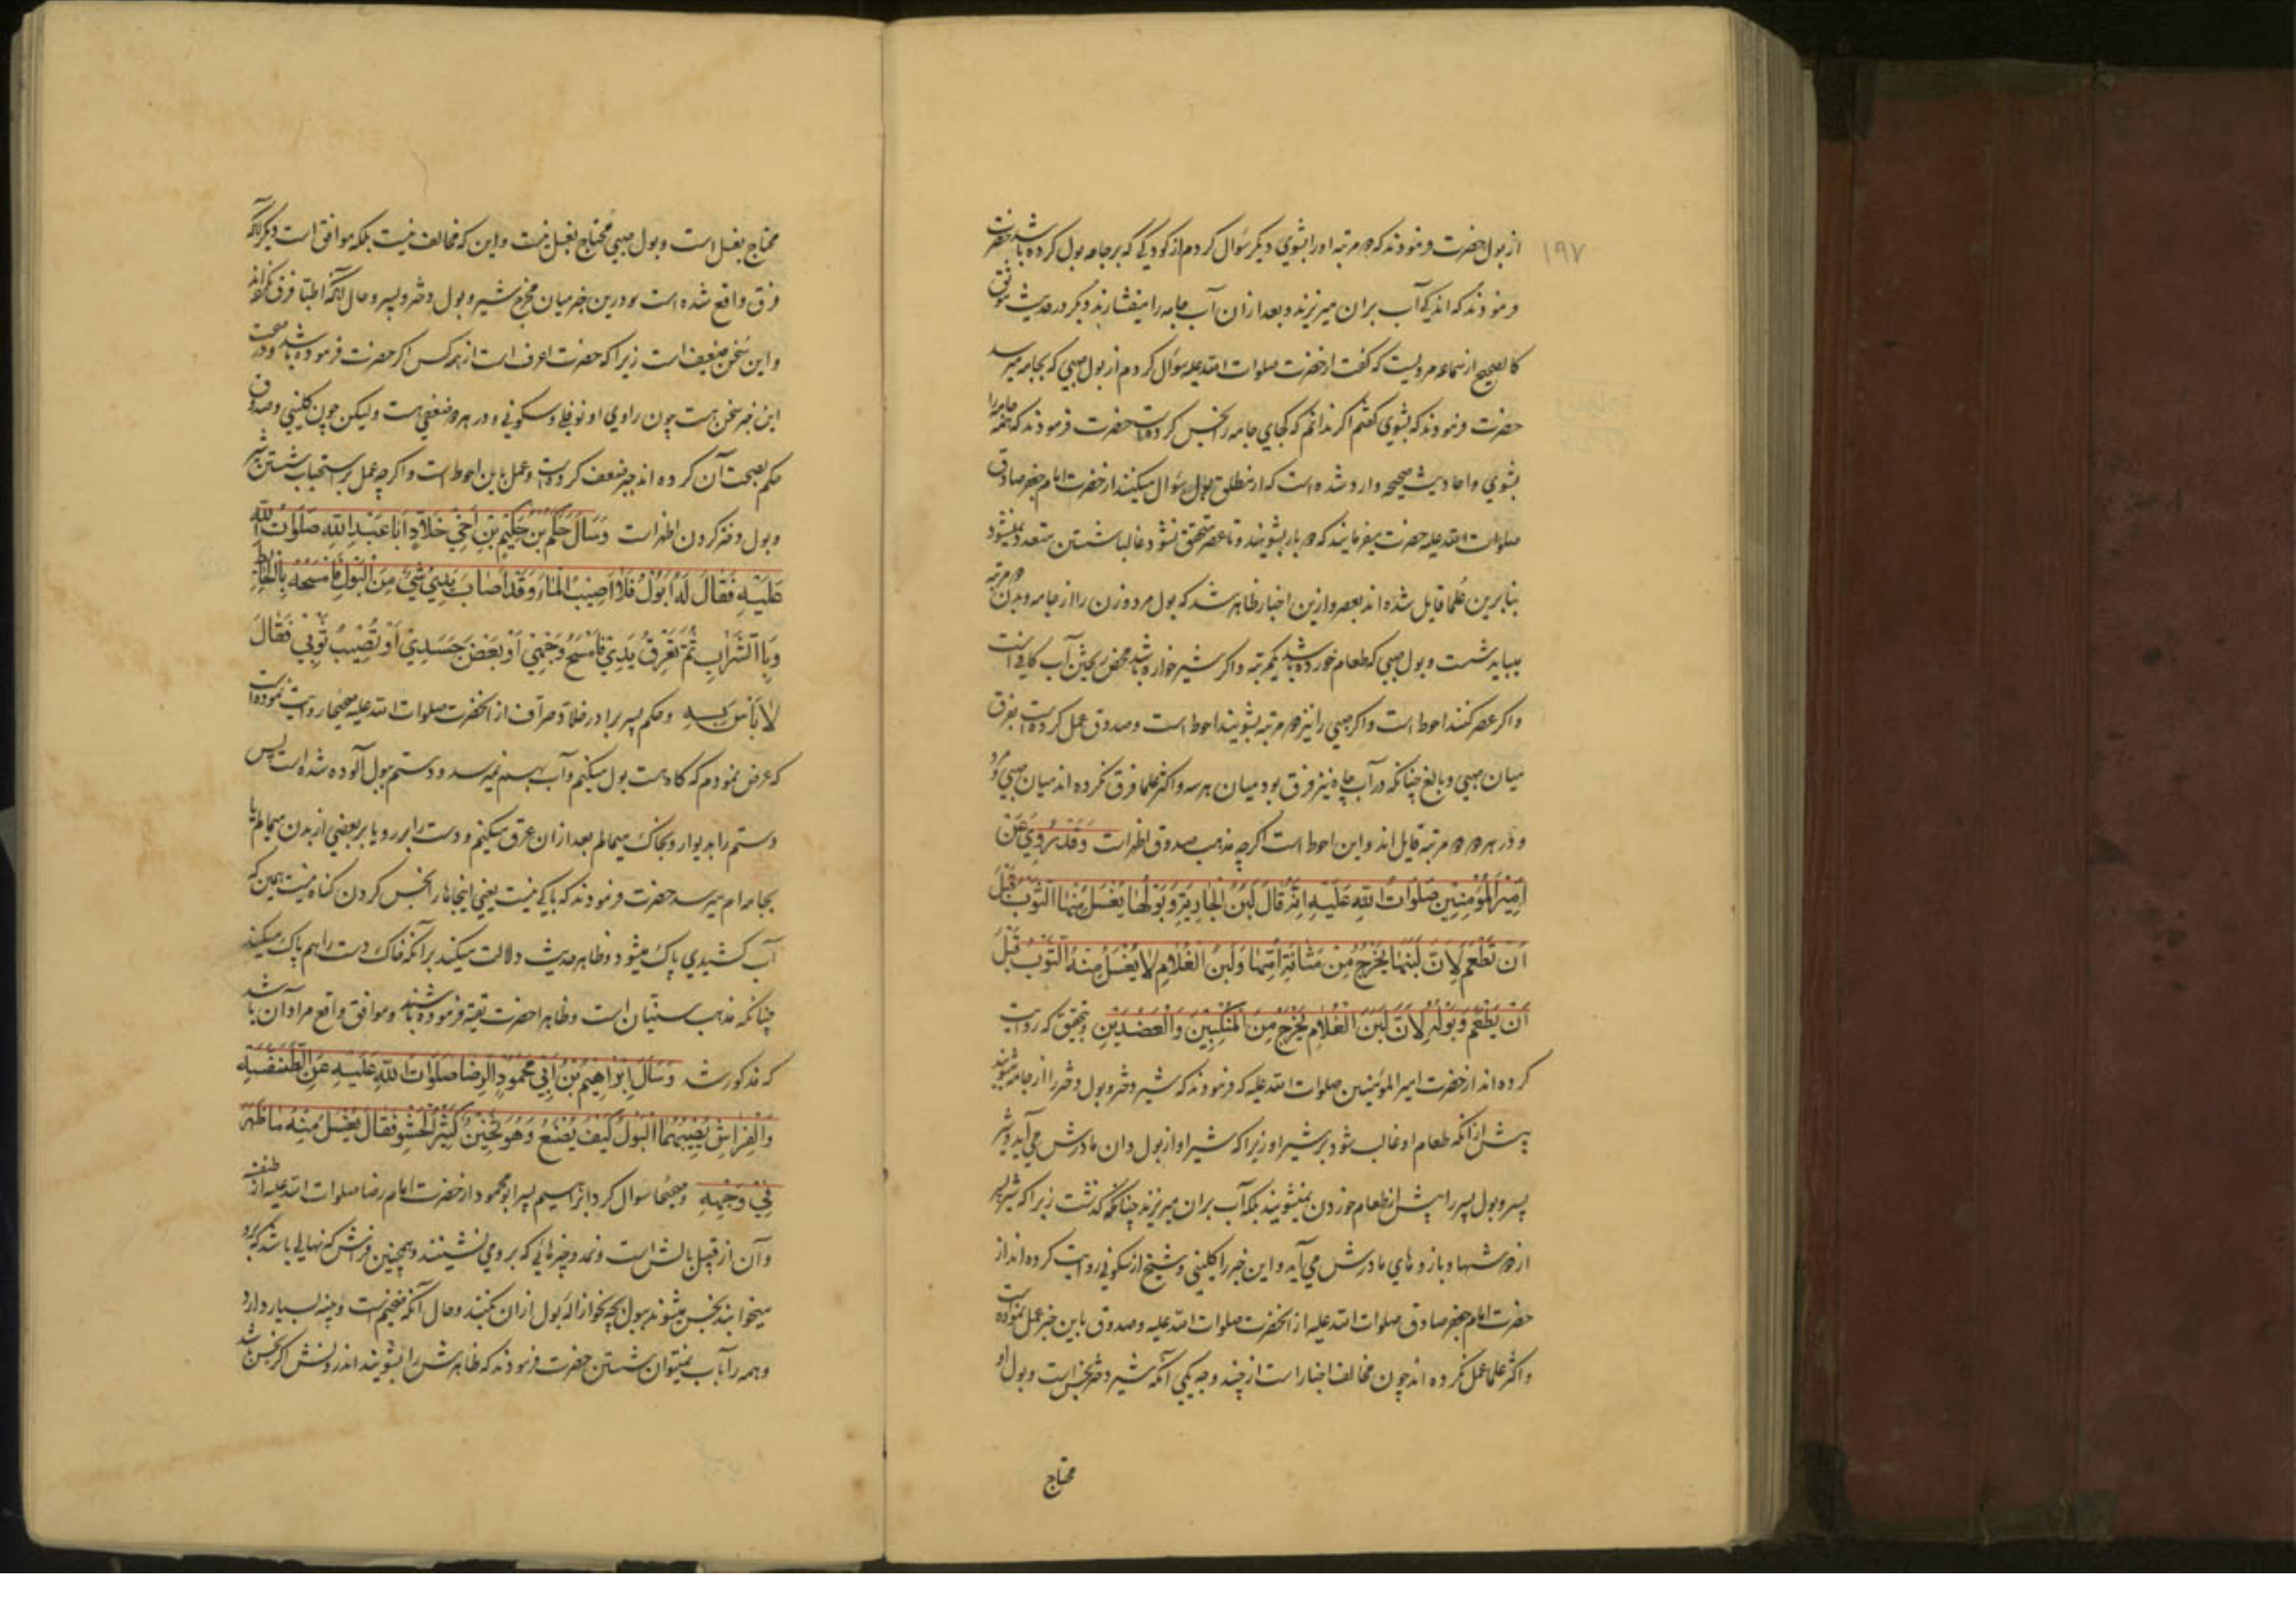 ۱۹۷
از بول حضرت فرمودند که دو مرتبه او را بشوی دیگر سؤال کردم از کودکی که بر جامه بول کرده باشد حضرت
فرمودند که اندک آب بران میریزند و بعد ازان آب جامه را میفشارند و دیگر در حدیث موثق
کالصحیح از سماعه مرویست که گفت از حضرت صلوات الله علیه سؤال کردم از بول صبی که بجامه میرسد
حضرت فرمودند که بشوی گفتم اگر ندانم که کجای جامه را نجس کرده است حضرت فرمودند که همه جامه را
بشوی و احادیث صحیحه وارد شده است که از مطلق بول سؤال میکنند از حضرت امام جعفر صادق
صلوات الله علیه حضرت میفرمایند که دو بار بشویند و تا عصر متحقق نشود غالبا شستن متعدد نمیشود
بنابرین علما قایل شده اند بعصر و ازین اخبار ظاهر شد که بول مرد و زن را از جامه و بدن دو مرتبه
میباید شست و بول صبی که طعام خورده باشد یکمرتبه و اگر شیر خواره باشد محض ریختن آب کافی است
و اگر عصر کنند احوط است و اگر صبی را نیز دو مرتبه بشویند احوط است و صدوق عمل کرده است بفرق
میان صبی و بالغ چنانکه در آب چاه نیز فرق بود میان هر سه و اکثر علما فرق نکرده اند میان صبی و مرد
و در هر دو دو مرتبه قایل اند و این احوط است اگرچه مذهب صدوق اظهر است وَقَدْ رُوِيَ عَنْ
اَمِيْرِ الْمُؤْمِنِيْنَ صَلَوَاتُ اللهِ عَلَيْهِ اَنَّهُ قَالَ لَبَنُ الْجَارِيَةِ وَبَوْلُهَا يُغْسَلُ مِنْهَا الثَّوْبُ قَبْلَ
اَنْ تَطْعَمَ لِاَنَّ لَبَنَهَا يَخْرُجُ مِنْ مَثَانَةِ اُمِّهَا وَلَبَنُ الْغُلَامِ لَا يُغْسَلُ مِنْهُ الثَّوْبُ قَبْلَ
اَنْ يَطْعَمَ وَبَوْلُهُ لِاَنَّ لَبَنَ الْغُلَامِ يَخْرُجُ مِنَ الْمَنْكِبَيْنِ وَالْعَضُدَيْنِ و بتحقیق که روایت
کرده اند از حضرت امیر المؤمنین صلوات الله علیه که فرمودند که شیر دختر و بول دختر را از جامه میشویند
پیش از آنکه طعام او غالب شود بر شیر او زیرا که شیر او از بول دان مادرش می آید و شیر
پسر و بول پسر را پیش از طعام خوردن نمیشویند بلکه آب بران میریزند چنانکه گذشت زیرا که شیر پسر
از دوشها و بازوهای مادرش می آید و این خبر را کلینی و شیخ از سکونی روایت کرده اند از
حضرت امام جعفر صادق صلوات الله علیه از آنحضرت صلوات الله علیه و صدوق باین خبر عمل نموده است
و اکثر علما عمل نکرده اند چون مخالف اخبار است از چند وجه یکی آنکه شیر دختر نجس است و بول او
محتاج
محتاج بغسل است و بول صبی محتاج بغسل نیست و این که مخالف نیست بلکه موافق است دیگر آنکه
فرق واقع شده است درین خبر میان مخرج شیر و بول دختر و پسر و حال آنکه اطبا فرق نکرده اند
و این سخن ضعیف است زیرا که حضرت اعرف است از همه کس اگر حضرت فرموده باشد و در صحت
این خبر سخن هست چون راوی او نوفلی و سکونی و در هر دو ضعفی هست ولیکن چون کلینی و صدوق
حکم بصحت آن کرده اند جبر ضعف کرده است و عمل باین احوط است و اگرچه عمل بر استحباب شستن شیر
و بول دختر کردن اظهر است وَسَاَلَ حَكَمُ بْنُ حَكِيْمِ بْنِ اَخِي خَلَّادٍ اَبَا عَبْدِ اللهِ صَلَوَاتُ اللهِ
عَلَيْهِ فَقَالَ لَهُ اَبُوْلُ فَلَا اُصِيْبُ الْمَاءَ وَقَدْ اَصَابَ يَدِيْ شَيْءٌ مِنَ الْبَوْلِ فَاَمْسَحُهُ بِالْحَائِطِ
وَبِالتُّرَابِ ثُمَّ تَعْرَقُ يَدِيْ فَاَمْسَحُ وَجْهِيْ اَوْ بَعْضَ جَسَدِيْ اَوْ تُصِيْبُ ثَوْبِي فَقَالَ
لَا بَأْسَ بِهِ و حکم پسر برادر خلاد صراف از آنحضرت صلوات الله علیه صحیحا روایت نموده است
که عرض نمودم که گاه هست بول میکنم و آب بهم نمیرسد و دستم ببول آلوده شده است پس
دستم را بدیوار و بخاک میمالم بعد ازان عرق میکنم و دست را بر رو یا بر بعضی از بدن میمالم یا
بجامه ام میرسد حضرت فرمودند که باکی نیست یعنی اینجاها را نجس کردن گناه نیست همین که
آب کشیدی پاک میشود و ظاهر حدیث دلالت میکند بر آنکه خاک دست را هم پاک میکند
چنانکه مذهب سنیان است و ظاهرا حضرت تقیة فرموده باشند و موافق واقع مراد آن باشد
که مذکور شد وَسَاَلَ اِبْرَاهِيْمُ بْنُ اَبِي مَحْمُوْدٍ الرِّضَا صَلَوَاتُ اللهِ عَلَيْهِ عَنِ الطِّنْفِسَةِ
وَالْفِرَاشِ يُصِيْبُهُمَا الْبَوْلُ كَيْفَ يُصْنَعُ وَهُوَ ثَخِيْنٌ كَثِيْرُ الْحَشْوِ فَقَالَ يُغْسَلُ مِنْهُ مَا ظَهَرَ
فِي وَجْهِهِ و صحیحا سؤال کرد ابراهیم پسر ابو محمود از حضرت امام رضا صلوات الله علیه از طنفسه
و آن از قبیل بالش است و نمد و چیزهائی که برو می نشینند و همچنین فرش که نهالی باشد که برو
میخوابند نجس میشوند ببول چه نحو ازاله بول ازان کنند و حال آنکه ضخیم است و پنبه بسیار دارد
و همه را بآب نمیتوان شستن حضرت فرمودند که ظاهرش را بشویند اندرونش اگر نجس شد